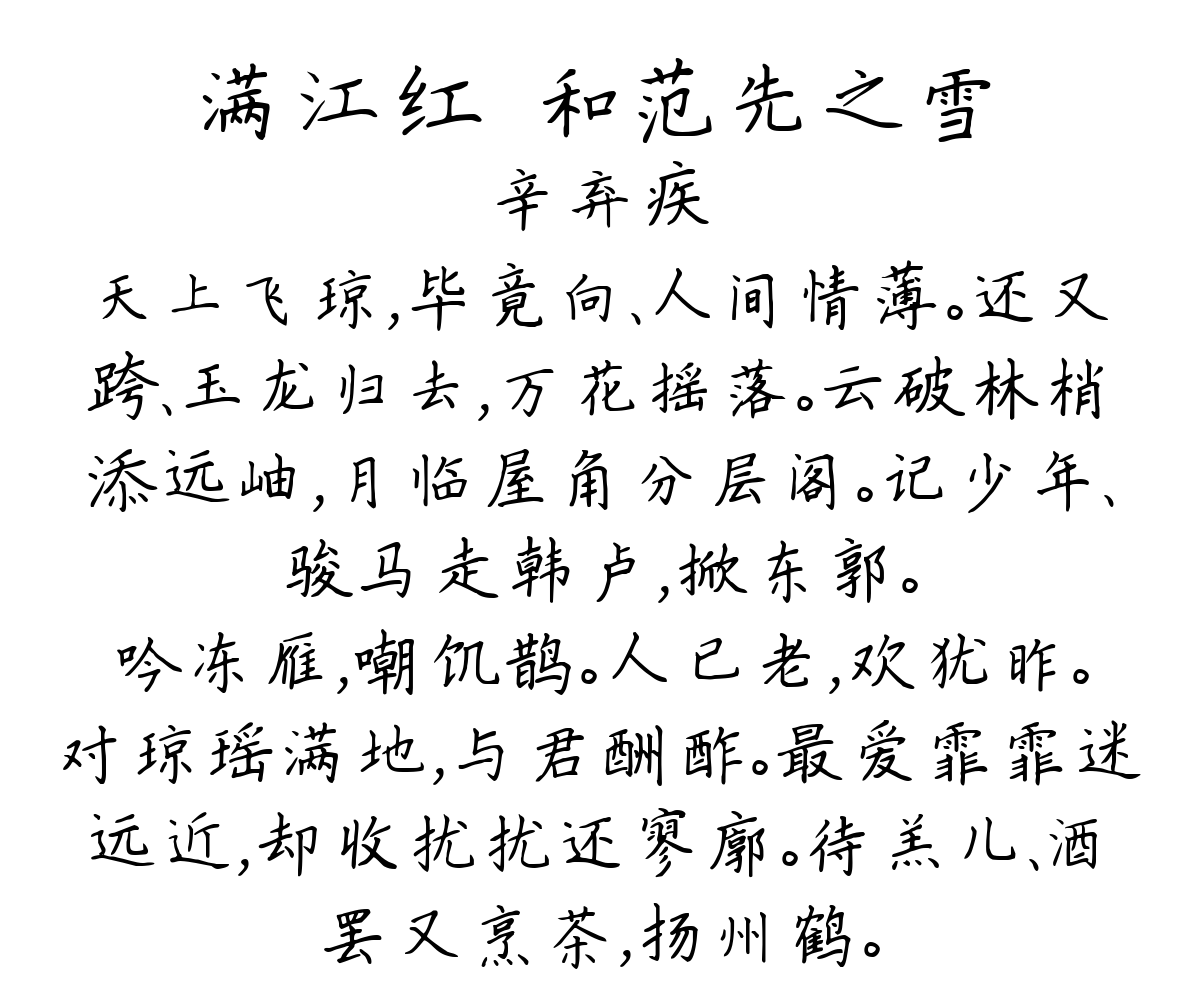 满江红 和范先之雪
辛弃疾
天上飞琼,毕竟向、人间情薄。还又
跨、玉龙归去,万花摇落。云破林梢
添远岫,月临屋角分层阁。记少年、
骏马走韩卢,掀东郭。
吟冻雁,嘲饥鹊。人已老,欢犹昨。
对琼瑶满地,与君酬酢。最爱霏霏迷
远近,却收扰扰还寥廓。待羔儿、酒
罢又烹茶,扬州鹤。